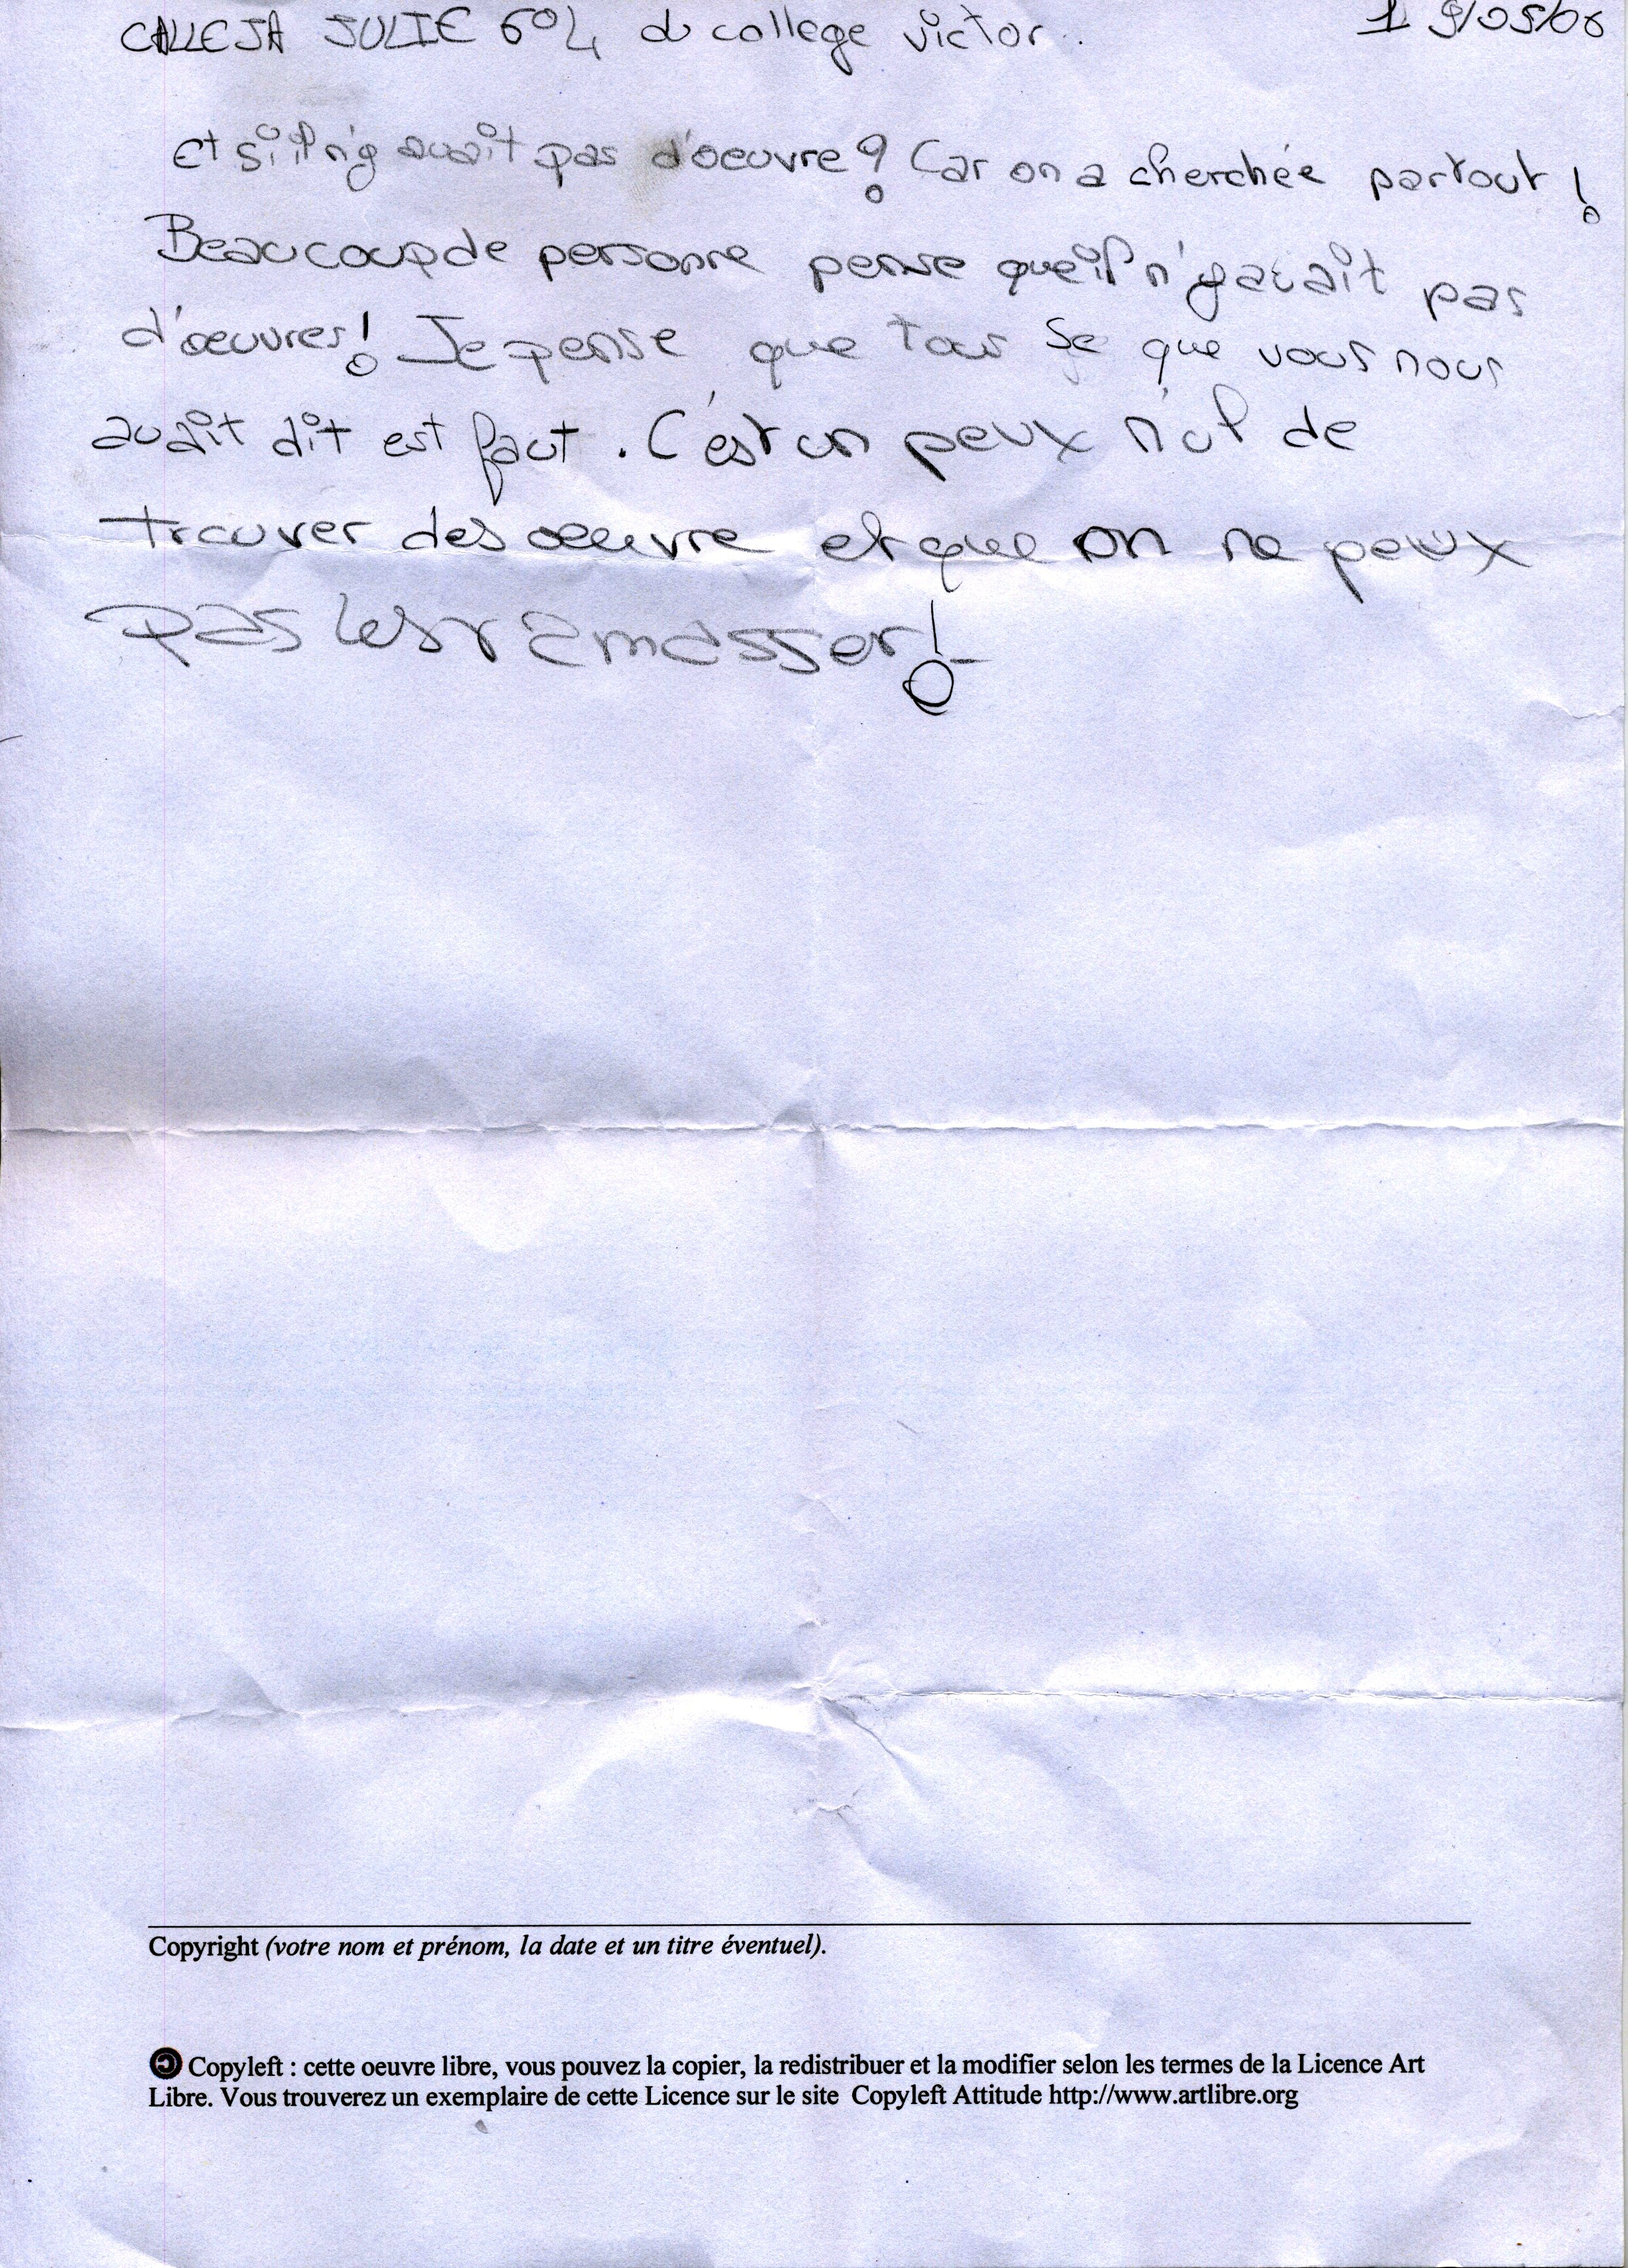 CALLEJA JULIE 6°4 du college victor.
19/05/06
Et si il n'y avait pas d'oeuvre? Car on a cherchée partout!
Beaucoup de personne pense que il n'y avait pas
d'oeuvres! Je pense que tous se que vous nous
avait dit est faut. C'est un peux nul de
trouver des oeuvre et que on ne peux
pas les ramasser!
Copyright (votre nom et prénom, la date et un titre éventuel).
Copyleft : cette oeuvre libre, vous pouvez la copier, la redistribuer et la modifier selon les termes de la Licence Art
Libre. Vous trouverez un exemplaire de cette Licence sur le site Copyleft Attitude http://www.artlibre.org